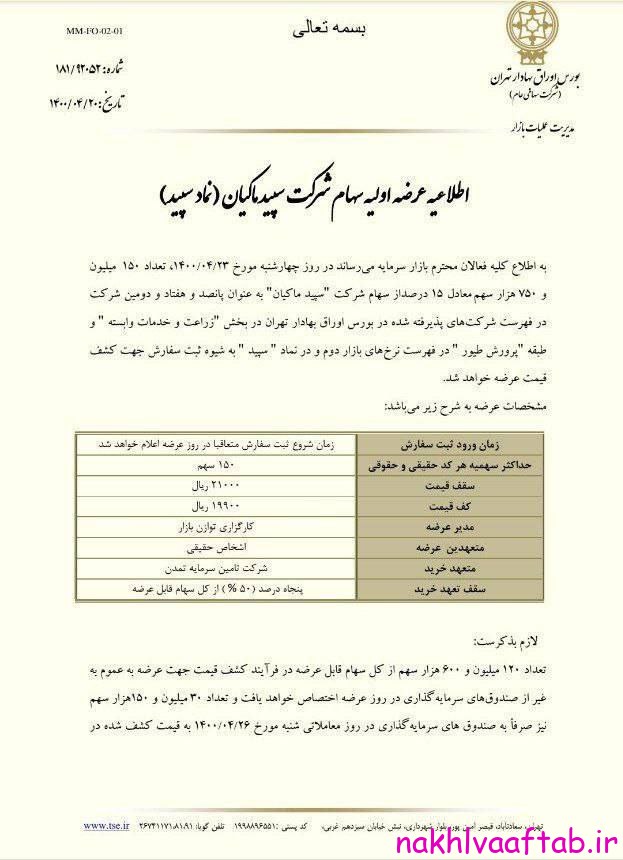 بسمه تعالی
MM-FO-02-01
شماره: ۱۸۱/۹۲۰۵۲
تاریخ: ۱۴۰۰/۰۴/۲۰
بورس اوراق بهادار تهران
(شرکت سهامی عام)
مدیریت عملیات بازار
اطلاعیه عرضه اولیه سهام شرکت سپید ماکیان (نماد سپید)
به اطلاع کلیه فعالان محترم بازار سرمایه می‌رساند در روز چهارشنبه مورخ ۱۴۰۰/۰۴/۲۳، تعداد ۱۵۰ میلیون
و ۷۵۰ هزار سهم معادل ۱۵ درصداز سهام شرکت "سپید ماکیان" به عنوان پانصد و هفتاد و دومین شرکت
در فهرست شرکت‌های پذیرفته شده در بورس اوراق بهادار تهران در بخش "زراعت و خدمات وابسته " و
طبقه "پرورش طیور " در فهرست نرخ‌های بازار دوم و در نماد " سپید " به شیوه ثبت سفارش جهت کشف
قیمت عرضه خواهد شد.
مشخصات عرضه به شرح زیر می‌باشد:
زمان ورود ثبت سفارش زمان شروع ثبت سفارش متعاقبا در روز عرضه اعلام خواهد شد
حداکثر سهمیه هر کد حقیقی و حقوقی ۱۵۰ سهم
سقف قیمت ۲۱۰۰۰ ریال
کف قیمت ۱۹۹۰۰ ریال
مدیر عرضه کارگزاری توازن بازار
متعهدین عرضه اشخاص حقیقی
متعهد خرید شرکت تامین سرمایه تمدن
سقف تعهد خرید پنجاه درصد (۵۰ %) از کل سهام قابل عرضه
لازم بذکرست:
تعداد ۱۲۰ میلیون و ۶۰۰ هزار سهم از کل سهام قابل عرضه در فرآیند کشف قیمت جهت عرضه به عموم به
غیر از صندوق‌های سرمایه‌گذاری در روز عرضه اختصاص خواهد یافت و تعداد ۳۰ میلیون و ۱۵۰هزار سهم
نیز صرفاً به صندوق های سرمایه‌گذاری در روز معاملاتی شنبه مورخ ۱۴۰۰/۰۴/۲۶ به قیمت کشف شده در
تهران، سعادتاباد، قیصر امین پور، بلوار شهرداری، نبش خیابان سیزدهم غربی، کد پستی :۱۹۹۸۸۹۶۵۵۱ تلفن گویا: ۲۶۷۴۱۱۷۱،۸۱،۹۱ www.tse.ir
nakhlvaaftab.ir